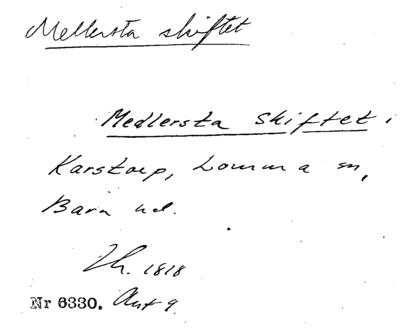 Mellersta skiftet
Medlersta skiftet i
Karstorp, Lomma sn,
Bara hd.
Lh. 1818
Nr 6330. Akt 9.